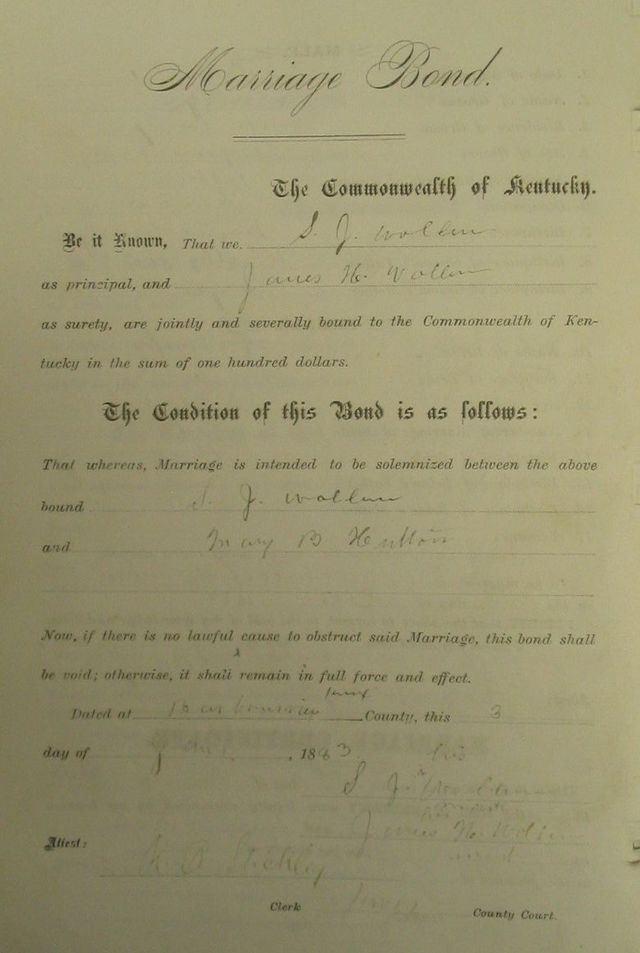 Marriage Bond.
The Commonwealth of Kentucky.
Be it Known, That we S. J. Wollen
as principal, and James H. Wollen
as surety, are jointly and severally bound to the Commonwealth of Ken-
tucky in the sum of one hundred dollars.
The Condition of this Bond is as follows:
That whereas, Marriage is intended to be solemnized between the above
bound S. J. Wollen
and Mary B Hutton
Now, if there is no lawful cause to obstruct said Marriage, this bond shall
be void; otherwise, it shall remain in full force and effect.
Dated at County, this 3
day of , 1883 his
S J
James H. Wollen
Attest:
Clerk County Court.